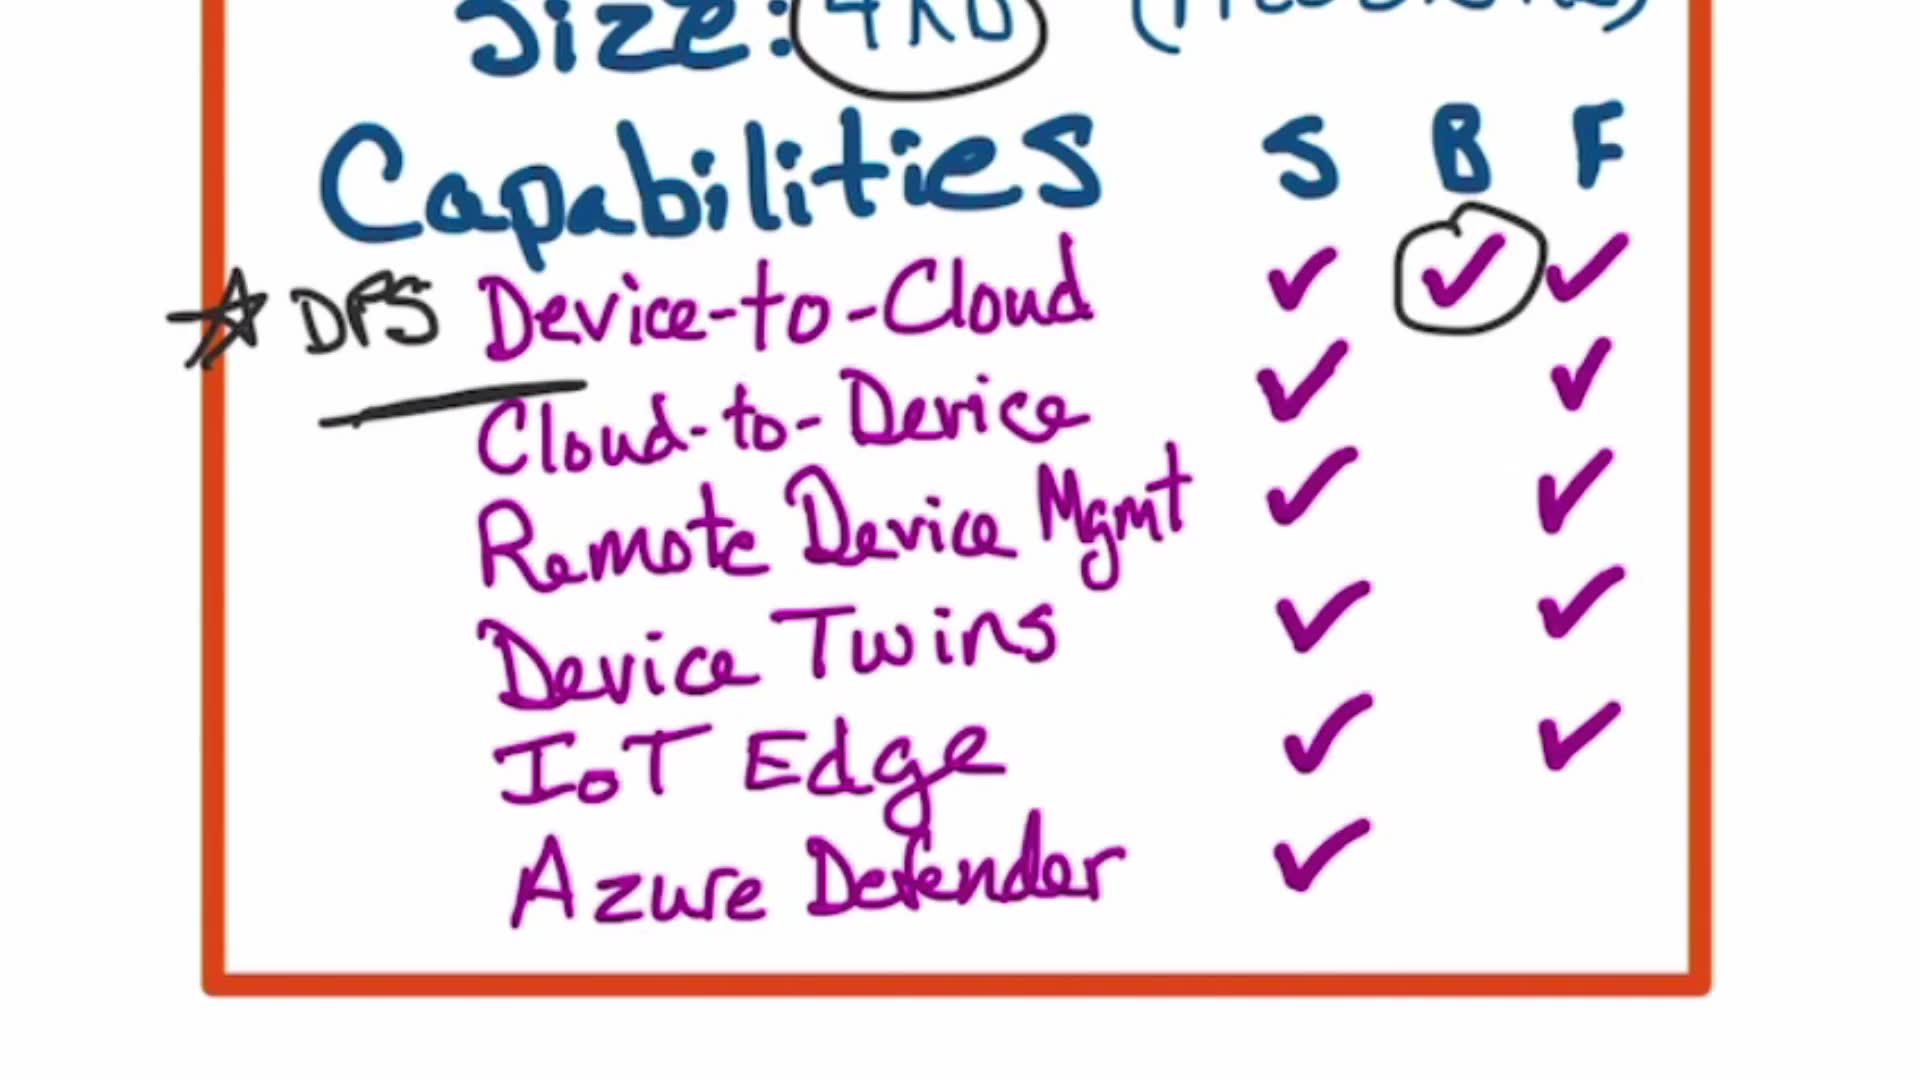 Size: 4KB
Capabilities S B F
DPS Device-to-Cloud ✓ ✓ ✓
Cloud-to-Device ✓ ✓
Remote Device Mgmt ✓ ✓
Device Twins ✓ ✓
IoT Edge ✓ ✓
Azure Defender ✓